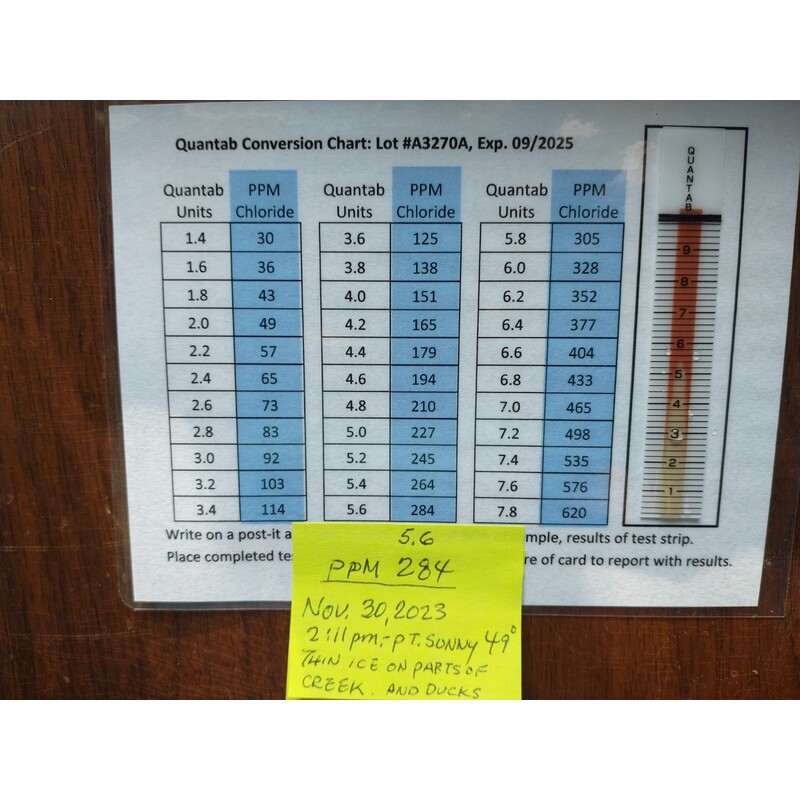 Quantab Conversion Chart: Lot #A3270A, Exp. 09/2025
Quantab Units PPM Chloride Quantab Units PPM Chloride Quantab Units PPM Chloride
1.4 30 3.6 125 5.8 305
1.6 36 3.8 138 6.0 328
1.8 43 4.0 151 6.2 352
2.0 49 4.2 165 6.4 377
2.2 57 4.4 179 6.6 404
2.4 65 4.6 194 6.8 433
2.6 73 4.8 210 7.0 465
2.8 83 5.0 227 7.2 498
3.0 92 5.2 245 7.4 535
3.2 103 5.4 264 7.6 576
3.4 114 5.6 284 7.8 620
QUANTAB
9
8
7
6
5
4
3
2
1
Write on a post-it a mple, results of test strip.
Place completed tes re of card to report with results.
5.6
PPM 284
Nov. 30, 2023
2:11 pm.- PT. SUNNY 49°
THIN ICE ON PARTS OF
CREEK. AND DUCKS